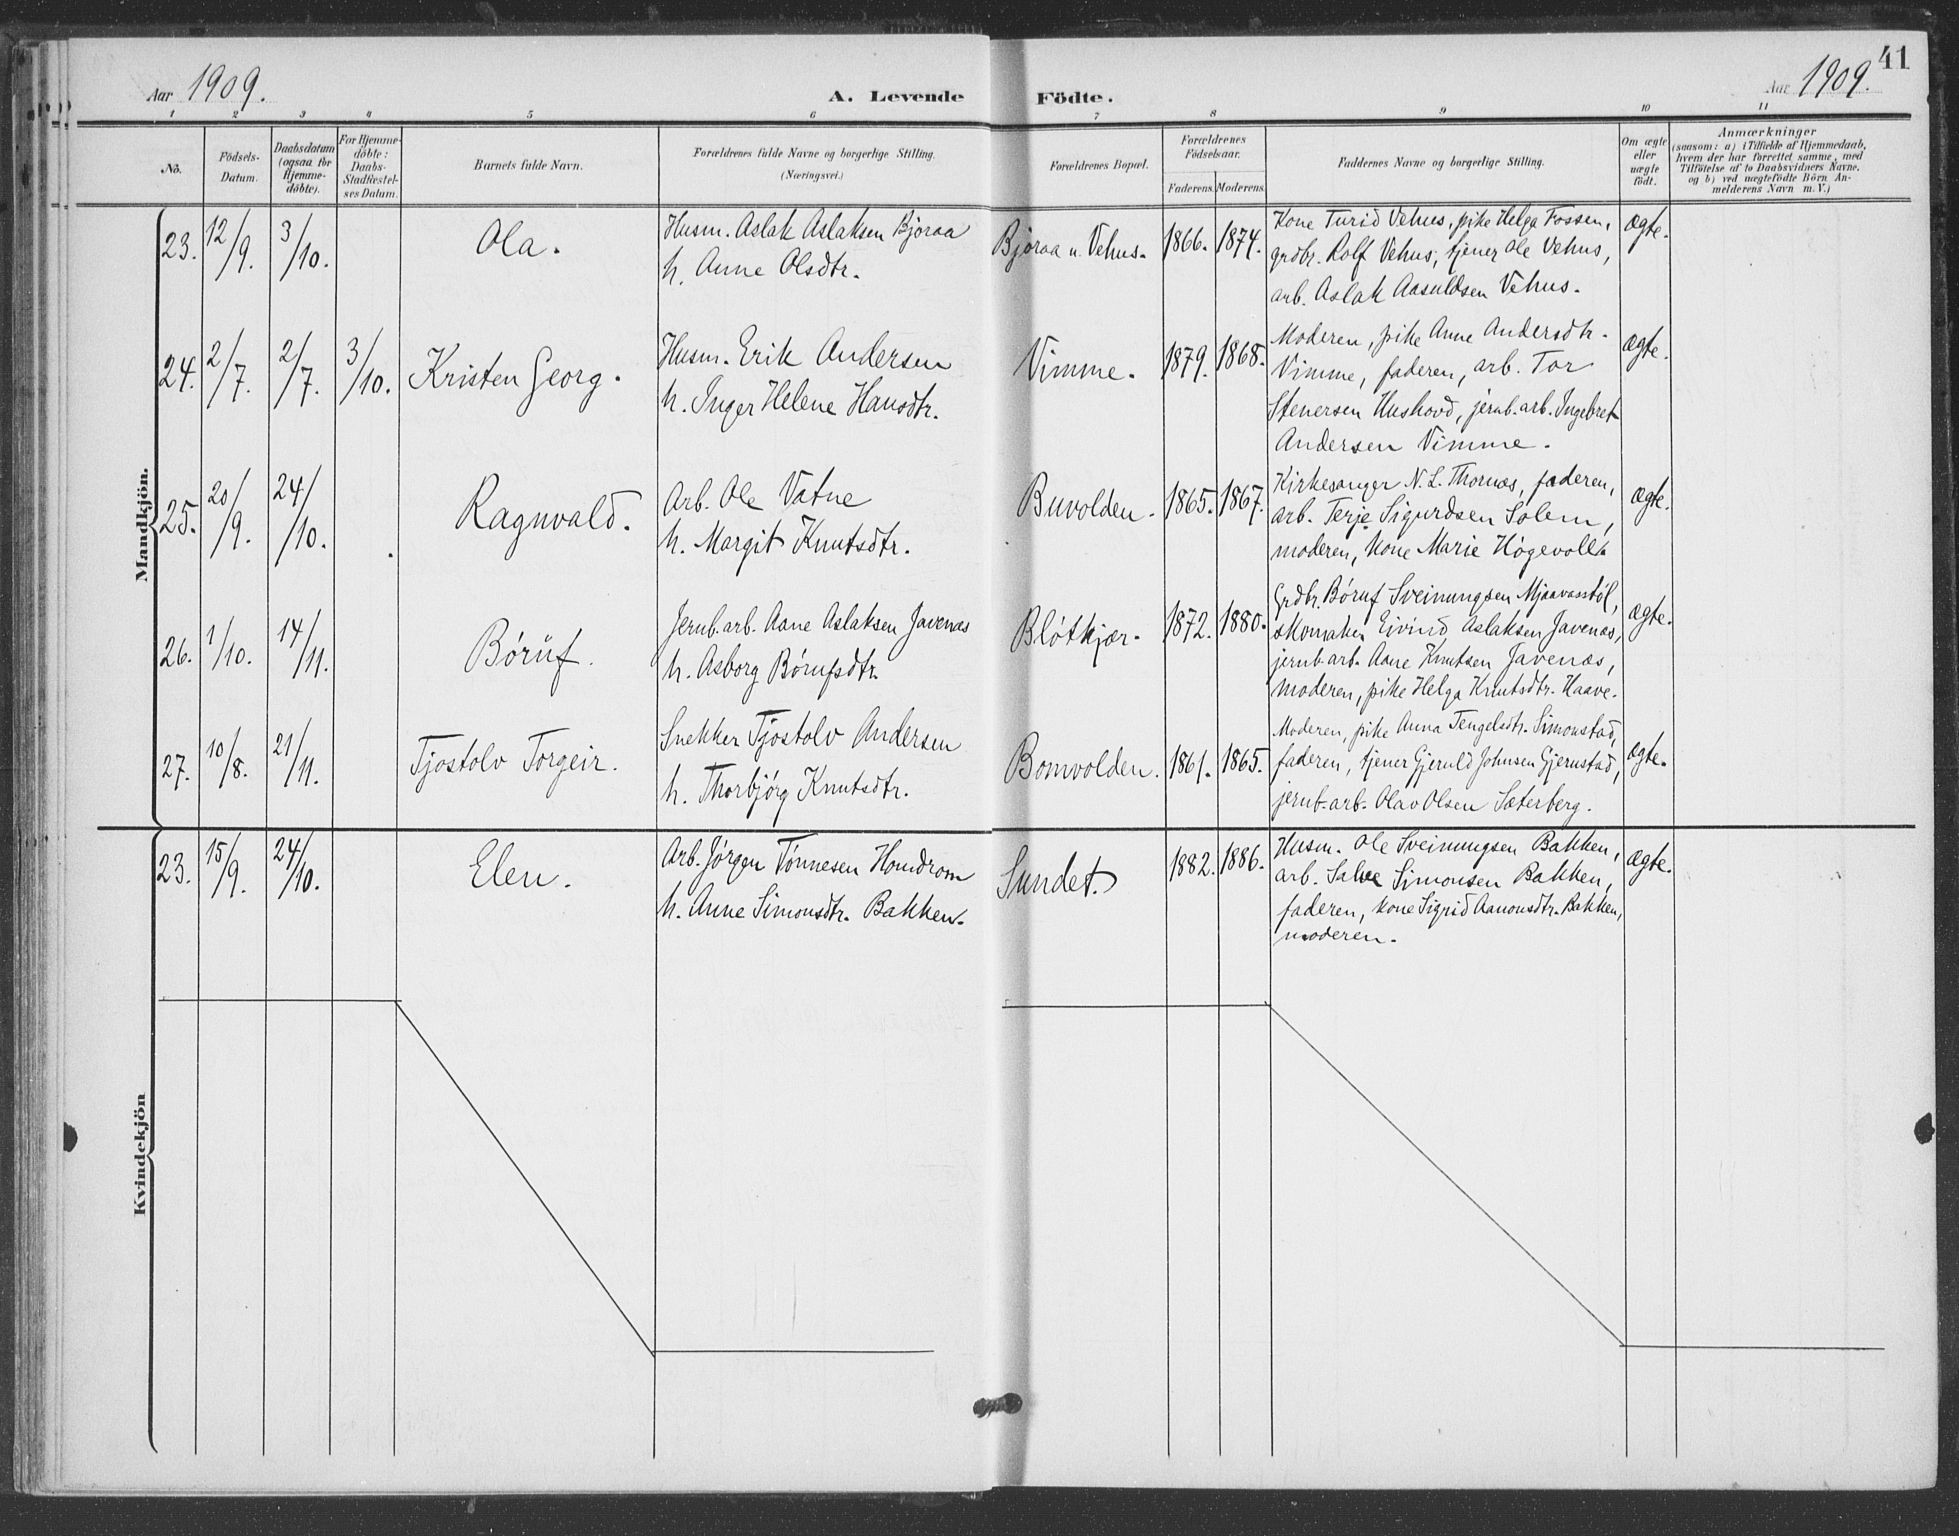 Aar 1909.
A. Levende Födte.
Aar 1909.
41
1 2 3 4 5 6 7 8 9 10 11
No.
Födsels-
Datum.
Daabsdatum
(ogsaa for
Hjemme-
döbte).
For Hjemme-
döbte:
Daabs-
Stadfæstel-
ses Datum.
Barnets fulde Navn.
Forældrenes fulde Navne og borgerlige Stilling.
(Næringsvei.)
Forældrenes Bopæl.
Forældrenes
Födselsaar.
Faderens. Moderens.
Faddernes Navne og borgerlige Stilling.
Om ægte
eller
uægte
födt.
Anmærkninger
(saasom: a) i Tilfælde af Hjemmedaab,
hvem der har forrettet samme, med
Tilföielse af to Daabsvidners Navne.
og b) ved uægtefödte Börn An-
melderens Navn m. V.)
Mandkjön.
23. 12/9. 3/10. Ola.
Husm. Aslak Aslaksen Bjoraa
h. Anne Olsdtr.
Bjoraa u. Vehus. 1866. 1874.
Kone Turid Vehus, pike Helga Fossen,
grdbr. Rolf Vehus, tjener Ole Vehus,
arb. Aslak Aasuldsen Vehus.
ægte.
24. 2/7. 2/7. 3/10. Kristen Georg.
Husm. Erik Andersen
h. Inger Helene Hansdtr.
Vimme. 1879. 1868.
Moderen, pike Anne Andersdtr.
Vimme, faderen, arb. Tor
Stenersen Hushovd, jernb.arb. Ingebret
Andersen Vimme.
ægte.
25. 20/9. 24/10. Ragnvald.
Arb. Ole Vatne
h. Margit Knutsdtr.
Buvolden. 1865. 1867.
Kirkesanger N. L. Thornæs, faderen,
arb. Terje Sigurdsen Solem,
moderen, kone Marie Høgevoll.
ægte.
26. 1/10. 14/11. Bórŭf.
Jernb.arb. Aane Aslaksen Javenæs
h. Asborg Bórufsdtr.
Blótkjær. 1872. 1880.
Grdbr. Bóruf Sveinungsen Mjaavasstól,
skomaker Eivind Aslaksen Javenæs,
jernb.arb. Aane Knutsen Javenæs,
moderen, pike Helga Knutsdtr. Haave.
ægte.
27. 10/8. 21/11. Tjostolv Torgeir.
Snekker Tjostolv Andersen
h. Thorbjórg Knutsdtr.
Bomvolden. 1861. 1865.
Moderen, pike Anna Tengelsdtr. Simonstad,
faderen, tjener Gjeruld Johnsen Gjerustad,
jernb.arb. Olav Olsen Sæterberg.
ægte.
Kvindekjön
23. 15/9. 24/10. Elen.
Arb. Jórgen Tónnesen Homdrom
h. Anne Simonsdtr. Bakken.
Sundet. 1882. 1886.
Husm. Ole Sveinungsen Bakken,
arb. Salve Simonsen Bakken,
faderen, kone Sigrid Aanonsdtr. Bakken,
moderen.
ægte.